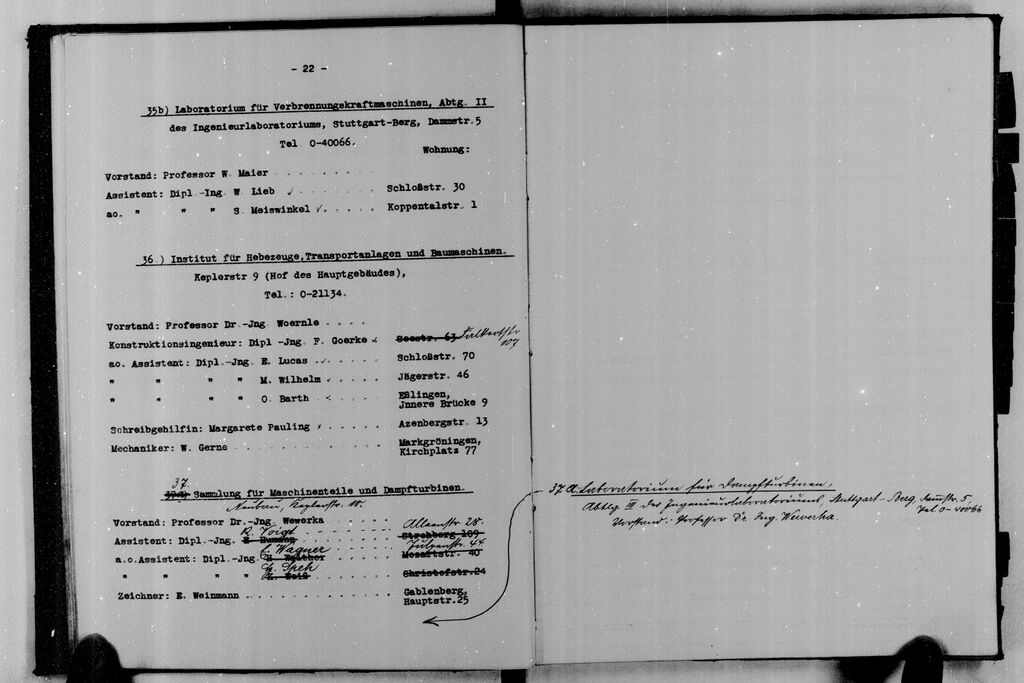 - 22 -
35b) Laboratorium für Verbrennungskraftmaschinen, Abtg. II
des Ingenieurlaboratoriums, Stuttgart-Berg, Dammstr.5
Tel 0-40066.
Wohnung:
Vorstand: Professor W. Maier . . . . . . .
Assistent: Dipl.-Ing. W. Lieb ✓ . . . . . . Schloßstr. 30
ao. " " " S. Meiswinkel ✓ . . . . . Koppentalstr. 1
36.) Institut für Hebezeuge, Transportanlagen und Baumaschinen.
Keplerstr 9 (Hof des Hauptgebäudes),
Tel.: 0-21134.
Vorstand: Professor Dr.-Jng. Woernle . . . .
Konstruktionsingenieur: Dipl.-Jng. F. Goerke ✓ Seestr. 63 Falkertstr
107
ao. Assistent: Dipl.-Jng. E. Lucas . ✓ . . . . Schloßstr. 70
" " " " M. Wilhelm ✓ . . . . Jägerstr. 46
" " " " O. Barth . ✓ . . . . Eßlingen,
Jnnere Brücke 9
Schreibgehilfin: Margarete Pauling ✓ . . . . Azenbergstr. 13
Mechaniker: W. Gerne . . . . . . . . . . Markgröningen,
Kirchplatz 77
37.
Sammlung für Maschinenteile und Dampfturbinen.
Neubau, Keplerstr. 10.
Vorstand: Professor Dr.-Jng. Wewerka . . . . Alleenstr 28.
R. Voigt
Assistent: Dipl.-Jng. . . . . Strohberg 109
C. Wagner Julyenstr. 44
a.o.Assistent: Dipl.-Jng. H. Walther . . . Mozartstr. 40
G. Speh
" " " " R. Weiß . . . . . Christofstr.24
Zeichner: E. Weinmann . . . . . . . . . . Gablenberg,
Hauptstr.25
37a. Laboratorium für Dampfturbinen,
Abtlg III des Ingenieurlaboratoriums, Stuttgart-Berg, Dammstr. 5,
Tel. 0-40066
Vorstand: Professor Dr. Ing. Wewerka.